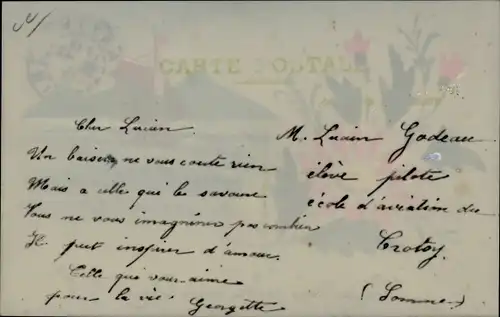 CARTE POSTALE
Cher Lucien
Un baiser ne vous coute rien
Mais a celle qui le savoure
Vous ne vous imaginez pas combien
Il peut inspirer d'amour
Celle qui vous aime
pour la vie. Georgette
M. Lucien Godeau
élève pilote
école d'aviation du
Crotoy
(Somme)